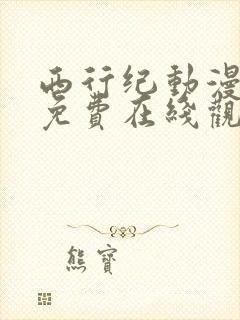 西行纪動漫
免費在綫觀
熊寶